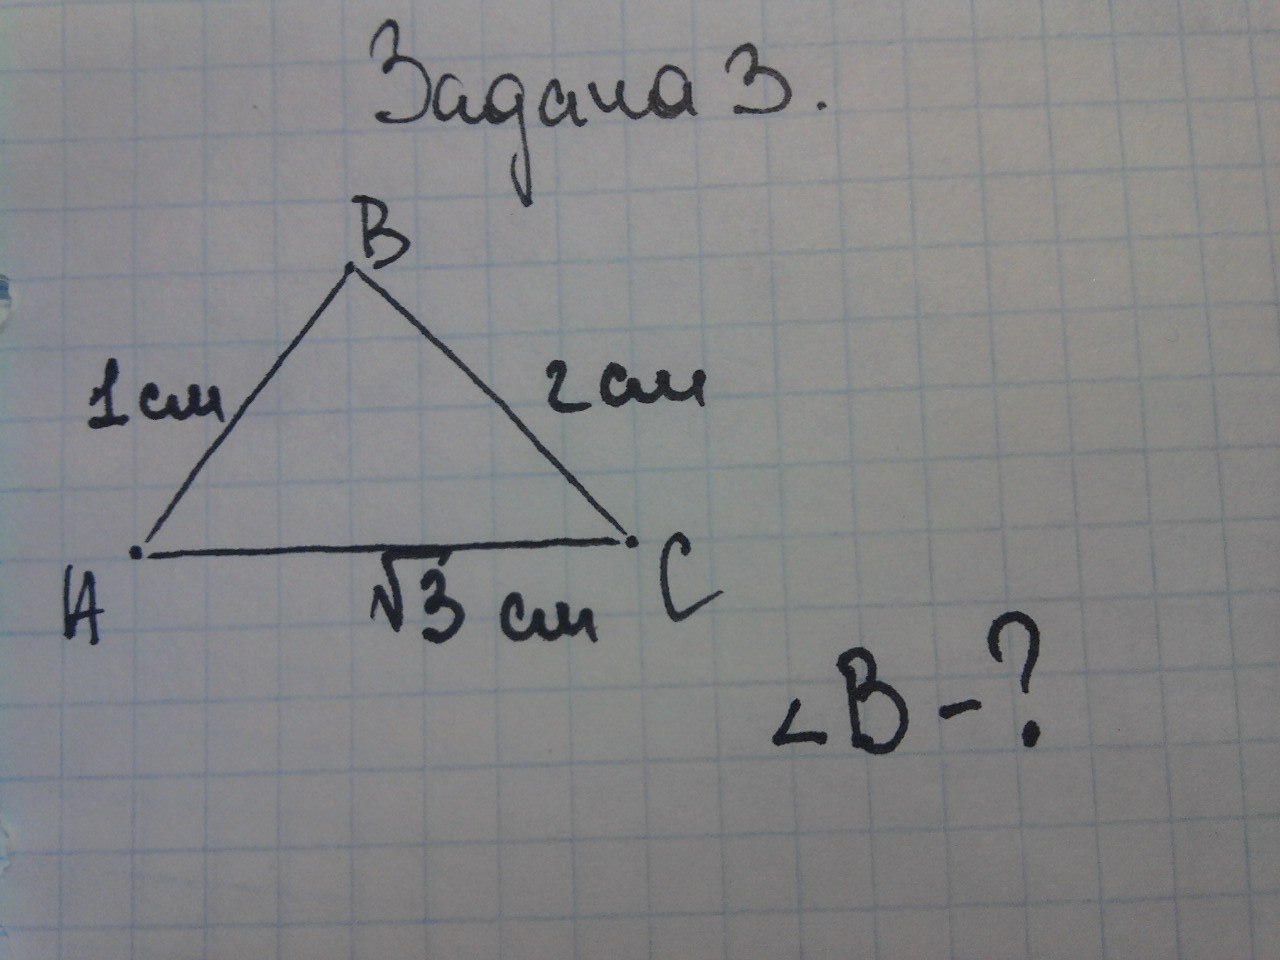 Задача 3.
B
1 см
2 см
A
√3 см
C
∠B - ?